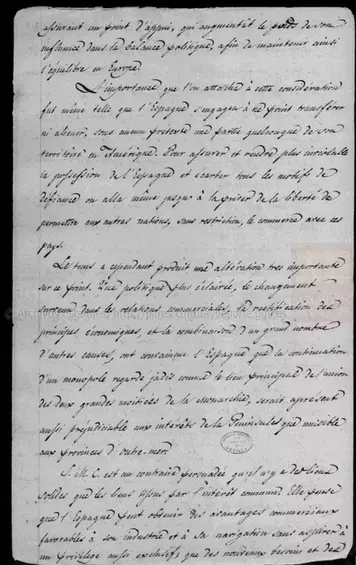 assurant un point d'appui, qui augmentât le poids de son
influence dans la balance politique, afin de maintenir ainsi
l'équilibre en Europe.
L'importance que l'on attacha à cette considération
fut même telle que l'Espagne s'engagea à ne point transférer
ni aliener, sous aucun prétexte une partie quelconque de son
territoire en Amérique. Pour assurer et rendre plus inviolable
la possession de l'Espagne et écarter tous les motifs de
défiance on alla même jusqu'à la priver de la liberté de
permettre aux autres nations, sans restriction, le commerce avec ces
pays.
Le tems a cependant produit une altération tres importante
sur ce point. Une politique plus éclairée, le changement
survenu dans les relations commerciales, la rectification des
principes économiques, et la combinaison d'un grand nombre
d'autres causes, ont convaincu l'Espagne que la continuation
d'un monopole regardé jadis comme le lien principal de l'union
des deux grandes moitiées de la monarchie, serait apresent
aussi préjudiciable aux intérêts de la Peninsule que nuisible
aux provinces d'outre-mer.
S. M. C. est au contraire persuadée qu'il n'y a des liens
solides que les liens issus par l'intérêt commun. Elle pense
que l'Espagne peut obtenir des avantages commerciaux
favorables à son industrie et à sa navigation sans aspirer à
un privilège aussi exclusif, que des nouveaux besoins et des